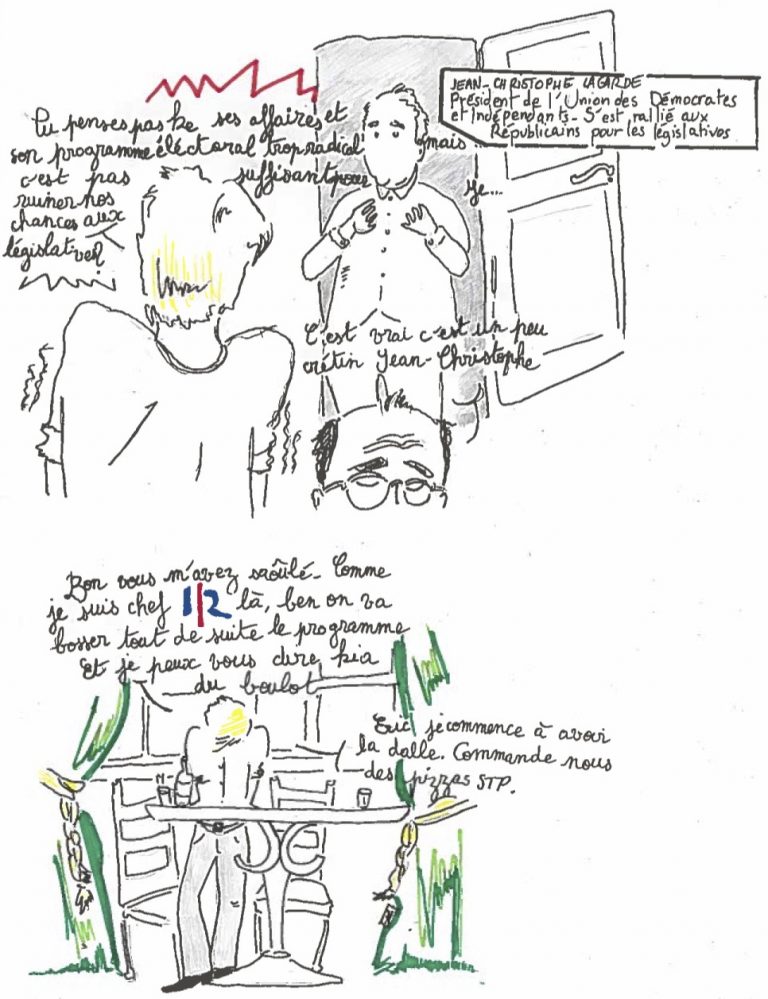 JEAN-CHRISTOPHE LAGARDE
Président de l'Union des Démocrates
et Indépendants - S'est rallié aux
Républicains pour les législatives
Tu penses pas ke ses affaires et
son programme éléctoral trop radical
c'est pas suffisant pour
ruiner nos
chances aux
législatives?
mais...
Je...
C'est vrai c'est un peu
crétin Jean-Christophe
Bon vous m'avez saoûlé. Comme
je suis chef 1/2 là, ben on va
bosser tout de suite le programme
Et je peux vous dire kia
du boulot
Eric je commence à avoir
la dalle. Commande nous
des pizzas STP.